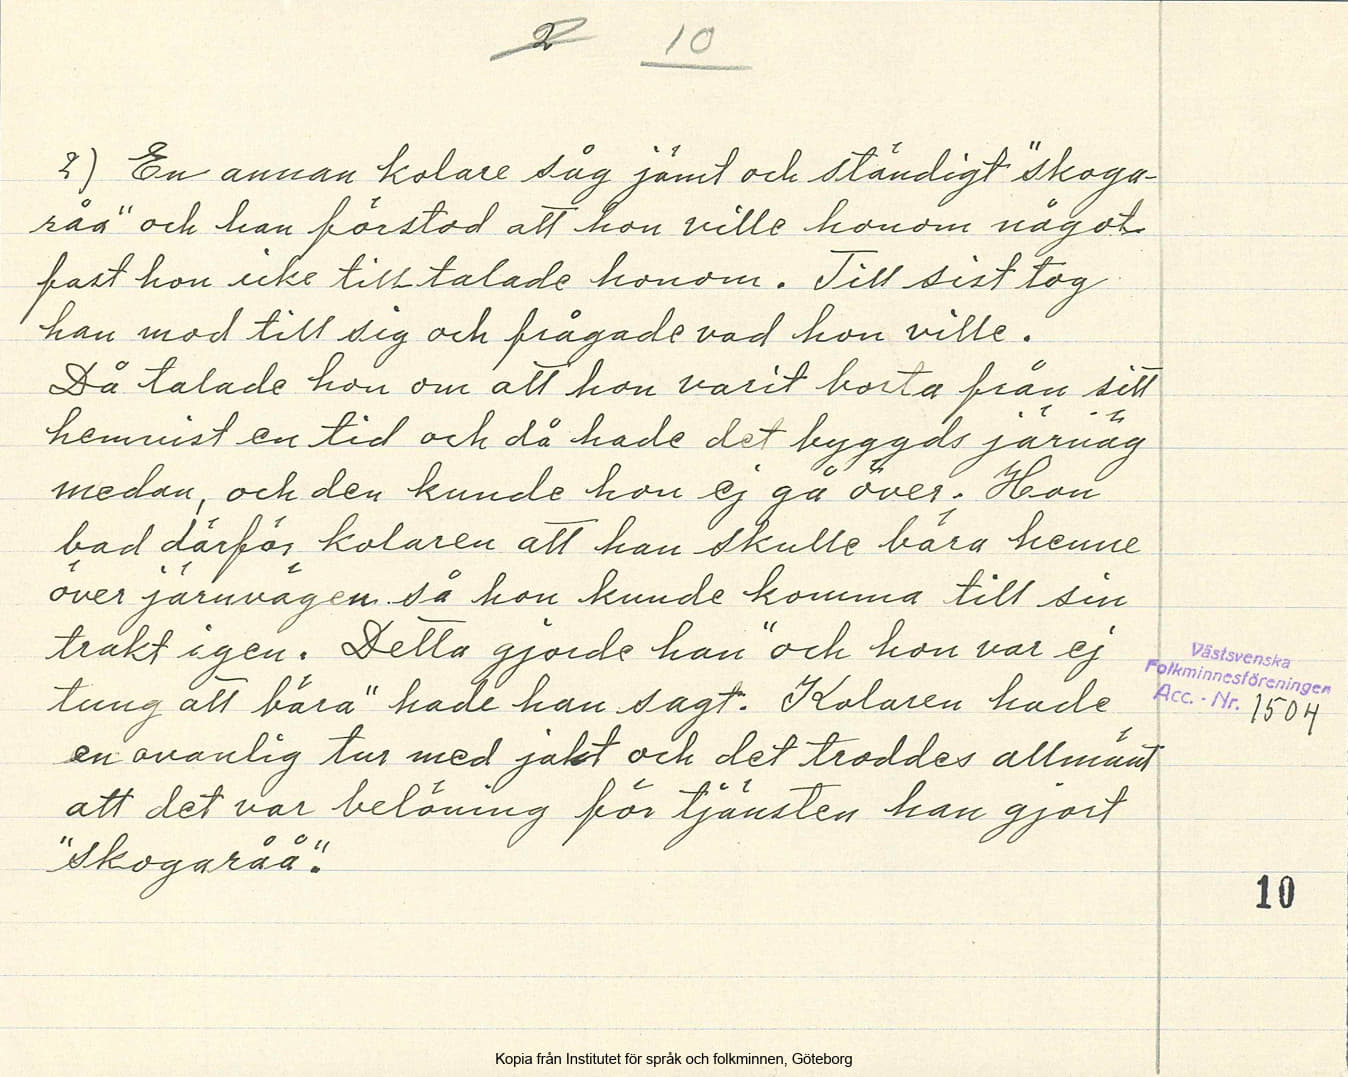 2 10
2) En annan kolare såg jämt och ständigt "skoga-
råa" och han förstod att hon ville honom något
fast hon icke tilltalade honom. Till sist tog
han mod till sig och frågade vad hon ville.
Då talade hon om att hon varit borta från sitt
hemvist en tid och då hade det byggds järnäg
medan, och den kunde hon ej gå över. Hon
bad därför kolaren att han skulle bära henne
över järnvägen så hon kunde komma till sin
trakt igen. Detta gjorde han "och hon var ej
tung att bära" hade han sagt. Kolaren hade
en ovanlig tur med jakt och det troddes allmänt
att det var belöning för tjänsten han gjort
"skogaråå".
Västsvenska
Folkminnesföreningen
Acc. - Nr. 1504
10
Kopia från Institutet för språk och folkminnen, Göteborg